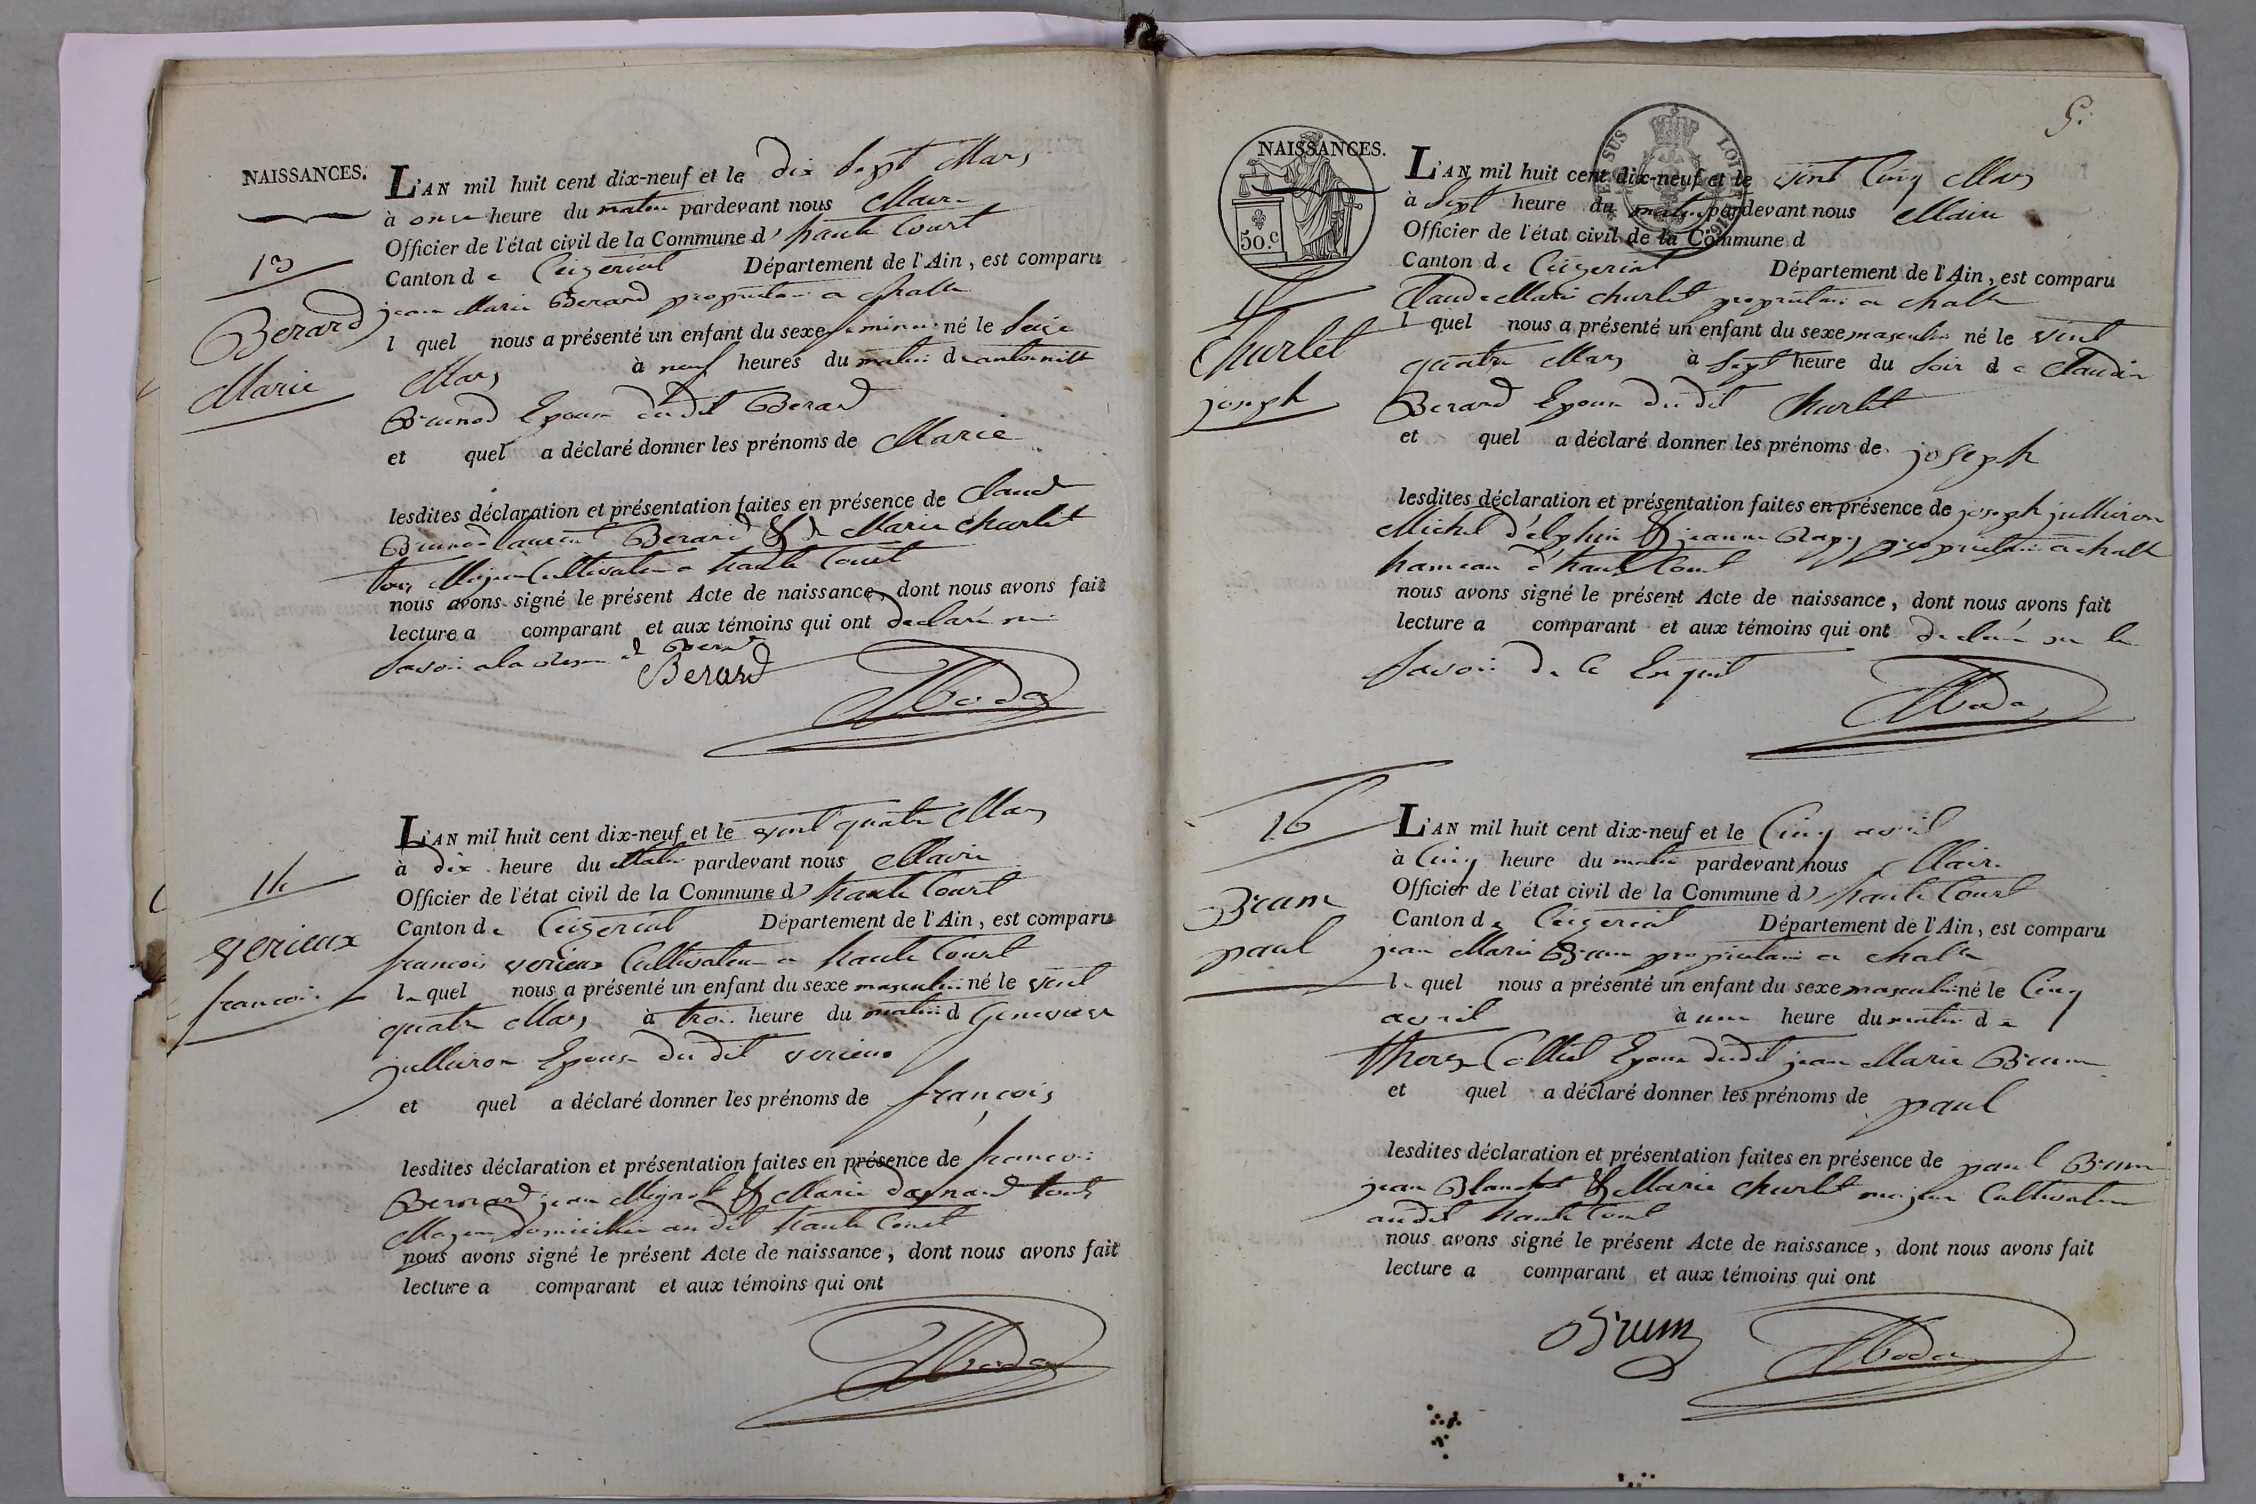 NAISSANCES.
L'AN mil huit cent dix-neuf et le dix sept Mars
à onze heure du matin pardevant nous Maire
Officier de l'état civil de la Commune d' haute Court
Canton de Ceizeriat Département de l'Ain, est comparu
13
Berard
Marie
jean Marie Berard propriétaire a challe
l quel nous a présenté un enfant du sexe feminin né le seize
Mars à neuf heures du matin d antoinette
Brunod Epouse du dit Berard
et quel a déclaré donner les prénoms de Marie
lesdites déclaration et présentation faites en présence de Claude
Brunod laurent Berard & de Marie Charlet
tous Majeur Cultivateur a haute Court
nous avons signé le présent Acte de naissance, dont nous avons fait
lecture a comparant et aux témoins qui ont declaré ne
savoir a la
Berard
14
verieux
francois
L'AN mil huit cent dix-neuf et le vint quatre Mars
à dix heure du Matin pardevant nous Maire
Officier de l'état civil de la Commune d' haute Court
Canton de Ceizeriat Département de l'Ain, est comparu
francois verieux Cultivateur a haute Court
le quel nous a présenté un enfant du sexe masculin né le vint
quatre Mars à trois heure du matin d Genevieve
jullieron Epouse du dit verieux
et quel a déclaré donner les prénoms de françois
lesdites déclaration et présentation faites en présence de francois
Bernard jean & Marie tout
Majeur domicilié au dit haute Court
nous avons signé le présent Acte de naissance, dont nous avons fait
lecture a comparant et aux témoins qui ont
5.
NAISSANCES.
50.c
L'AN mil huit cent dix-neuf et le vint Cinq Mars
à Sept heure du matin pardevant nous Maire
Officier de l'état civil de la Commune d
Canton de Ceizeriat Département de l'Ain, est comparu
Charlet
joseph
Claude Marie charlet propriétaire a challe
l quel nous a présenté un enfant du sexe masculin né le vint
quatre Mars à sept heure du soir de Claudine
Berard Epouse du dit Charlet
et quel a déclaré donner les prénoms de joseph
lesdites déclaration et présentation faites en présence de joseph jullieron
Michel d'elphin & jeanne propriétaire a challe
hameau d'haute Court
nous avons signé le présent Acte de naissance, dont nous avons fait
lecture a comparant et aux témoins qui ont declaré ne le
savoir de ce Enquit
16
Brun
paul
L'AN mil huit cent dix-neuf et le Cinq avril
à Cinq heure du matin pardevant nous Maire
Officier de l'état civil de la Commune d' haute Court
Canton de Ceizeriat Département de l'Ain, est comparu
jean Marie Brun propriétaire a challe
le quel nous a présenté un enfant du sexe masculin né le Cinq
avril à une heure du matin de
therese Epouse dudit jean Marie Brun
et quel a déclaré donner les prénoms de paul
lesdites déclaration et présentation faites en présence de paul Brun
jean Blanchet & Marie Charlet majeur Cultivateur
audit haute Court
nous avons signé le présent Acte de naissance, dont nous avons fait
lecture a comparant et aux témoins qui ont
Brun